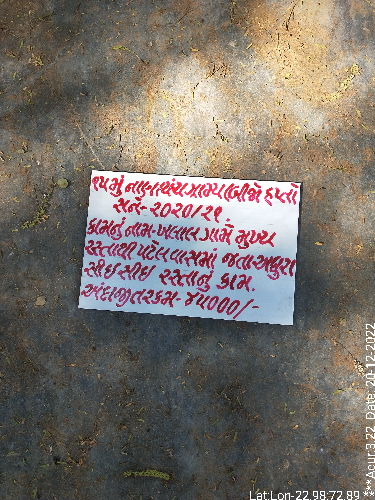 ૧૫મું નાણાપંચ ગ્રામ્ય (બીજો હપ્તો
સને-૨૦૨૦/૨૧.
કામનું નામ-ખલાલ ગામે મુખ્ય
રસ્તાથી પટેલ વાસમાં જતા અધુરા
સીઇસીઇ રસ્તાનું કામ.
અંદાજીત રકમ-૪૫૦૦૦/-
Lat:Lon-22.98:72.89
***Acur:3.22 Date: 20-12-2022